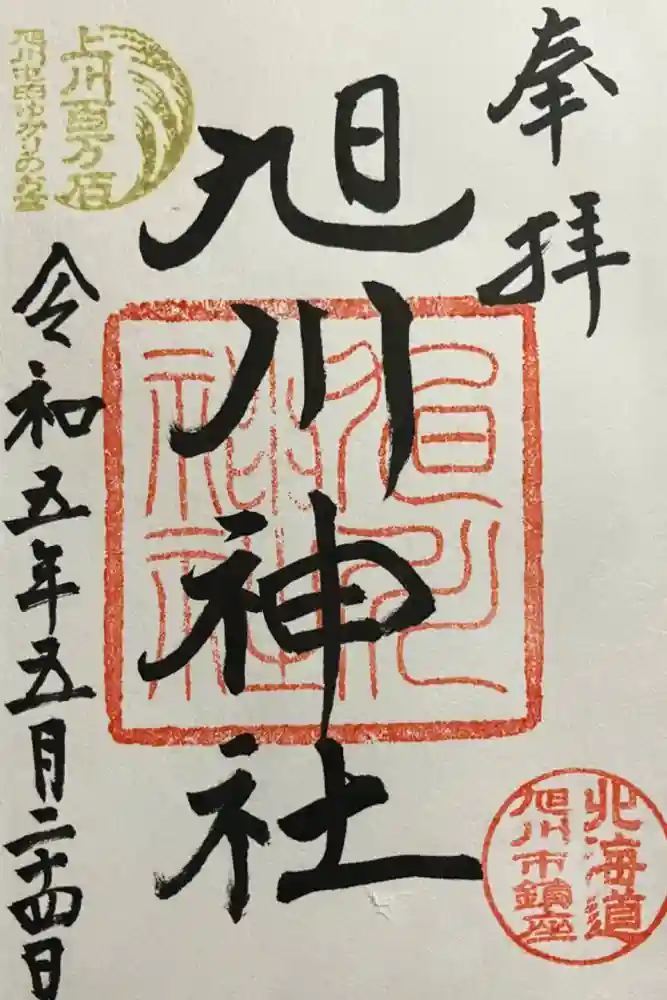 奉拝
旭川神社
旭川神社
北海道
旭川市鎮座
上川百万石
旭川市田んぼゆかりのお宮
令和五年五月二十四日